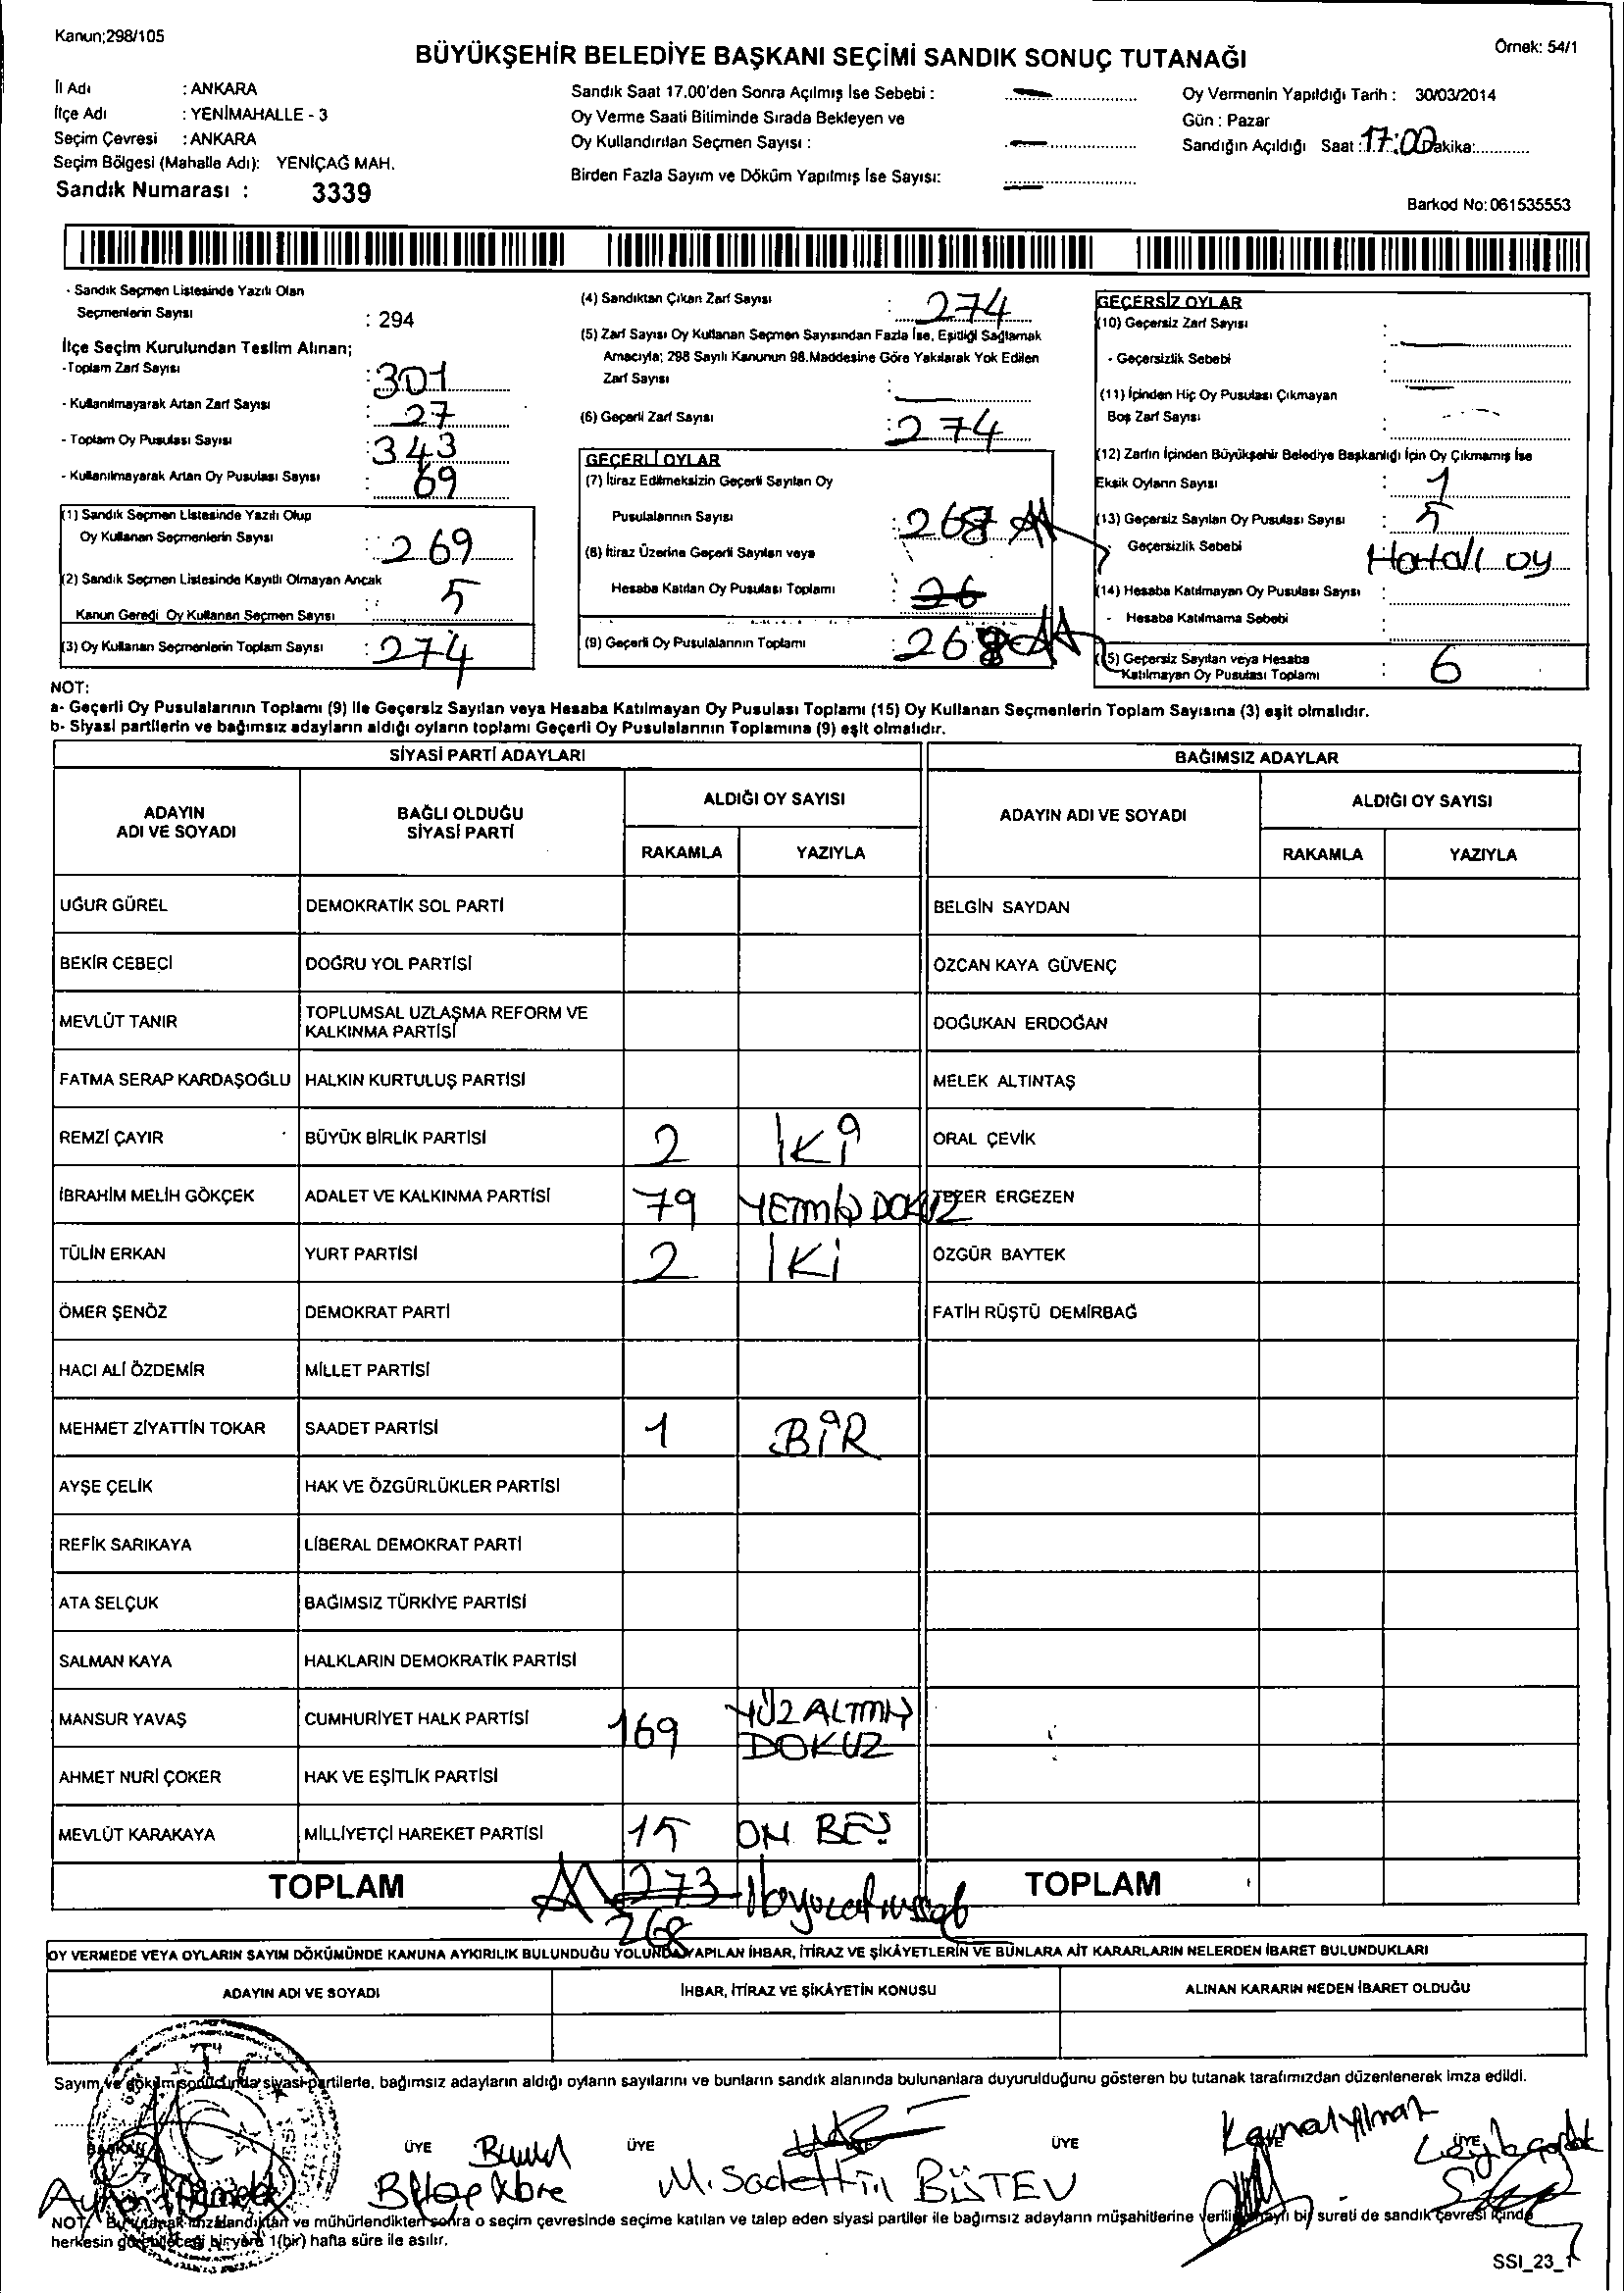 Kanun;298/105
Örnek: 54/1
BÜYÜKŞEHİR BELEDİYE BAŞKANI SEÇİMİ SANDIK SONUÇ TUTANAĞI
İl Adı : ANKARA
İlçe Adı : YENİMAHALLE - 3
Seçim Çevresi : ANKARA
Seçim Bölgesi (Mahalle Adı): YENİÇAĞ MAH.
Sandık Numarası : 3339
Sandık Saat 17.00'den Sonra Açılmış İse Sebebi :
Oy Verme Saati Bitiminde Sırada Bekleyen ve
Oy Kullandırılan Seçmen Sayısı :
Birden Fazla Sayım ve Döküm Yapılmış İse Sayısı:
Oy Vermenin Yapıldığı Tarih : 30/03/2014
Gün : Pazar
Sandığın Açıldığı Saat : 17:00 Dakika:
Barkod No: 061535553
- Sandık Seçmen Listesinde Yazılı Olan
Seçmenlerin Sayısı : 294
İlçe Seçim Kurulundan Teslim Alınan;
-Toplam Zarf Sayısı : 301
- Kullanılmayarak Artan Zarf Sayısı : 27
- Toplam Oy Pusulası Sayısı : 343
- Kullanılmayarak Artan Oy Pusulası Sayısı : 69
(1) Sandık Seçmen Listesinde Yazılı Olup
Oy Kullanan Seçmenlerin Sayısı : 269
(2) Sandık Seçmen Listesinde Kayıtlı Olmayan Ancak
Kanun Gereği Oy Kullanan Seçmen Sayısı : 5
(3) Oy Kullanan Seçmenlerin Toplam Sayısı : 274
(4) Sandıktan Çıkan Zarf Sayısı : 274
(5) Zarf Sayısı Oy Kullanan Seçmen Sayısından Fazla İse, Eşitliği Sağlamak
Amacıyla; 298 Sayılı Kanunun 98.Maddesine Göre Yakılarak Yok Edilen
Zarf Sayısı :
(6) Geçerli Zarf Sayısı : 274
GEÇERLİ OYLAR
(7) İtiraz Edilmeksizin Geçerli Sayılan Oy
Pusulalarının Sayısı : 268
(8) İtiraz Üzerine Geçerli Sayılan veya
Hesaba Katılan Oy Pusulası Toplamı : 26
(9) Geçerli Oy Pusulalarının Toplamı : 268
GEÇERSİZ OYLAR
(10) Geçersiz Zarf Sayısı :
- Geçersizlik Sebebi :
(11) İçinden Hiç Oy Pusulası Çıkmayan
Boş Zarf Sayısı :
(12) Zarfın İçinden Büyükşehir Belediye Başkanlığı İçin Oy Çıkmamış İse
Eksik Oyların Sayısı : 1
(13) Geçersiz Sayılan Oy Pusulası Sayısı : 5
Geçersizlik Sebebi : Hatalı oy
(14) Hesaba Katılmayan Oy Pusulası Sayısı :
- Hesaba Katılmama Sebebi :
(15) Geçersiz Sayılan veya Hesaba
Katılmayan Oy Pusulası Toplamı : 6
NOT:
a- Geçerli Oy Pusulalarının Toplamı (9) ile Geçersiz Sayılan veya Hesaba Katılmayan Oy Pusulası Toplamı (15) Oy Kullanan Seçmenlerin Toplam Sayısına (3) eşit olmalıdır.
b- Siyasi partilerin ve bağımsız adayların aldığı oyların toplamı Geçerli Oy Pusulalarının Toplamına (9) eşit olmalıdır.
SİYASİ PARTİ ADAYLARI
BAĞIMSIZ ADAYLAR
ADAYIN
ADI VE SOYADI
BAĞLI OLDUĞU
SİYASİ PARTİ
ALDIĞI OY SAYISI
RAKAMLA YAZIYLA
ADAYIN ADI VE SOYADI
ALDIĞI OY SAYISI
RAKAMLA YAZIYLA
UĞUR GÜREL DEMOKRATİK SOL PARTİ BELGİN SAYDAN
BEKİR CEBECİ DOĞRU YOL PARTİSİ ÖZCAN KAYA GÜVENÇ
MEVLÜT TANIR TOPLUMSAL UZLAŞMA REFORM VE
KALKINMA PARTİSİ DOĞUKAN ERDOĞAN
FATMA SERAP KARDAŞOĞLU HALKIN KURTULUŞ PARTİSİ MELEK ALTINTAŞ
REMZİ ÇAYIR BÜYÜK BİRLİK PARTİSİ 2 İKİ ORAL ÇEVİK
İBRAHİM MELİH GÖKÇEK ADALET VE KALKINMA PARTİSİ 79 YETMİŞ DOKUZ TEZER ERGEZEN
TÜLİN ERKAN YURT PARTİSİ 2 İKİ ÖZGÜR BAYTEK
ÖMER ŞENÖZ DEMOKRAT PARTİ FATİH RÜŞTÜ DEMİRBAĞ
HACI ALİ ÖZDEMİR MİLLET PARTİSİ
MEHMET ZİYATTİN TOKAR SAADET PARTİSİ 1 BİR
AYŞE ÇELİK HAK VE ÖZGÜRLÜKLER PARTİSİ
REFİK SARIKAYA LİBERAL DEMOKRAT PARTİ
ATA SELÇUK BAĞIMSIZ TÜRKİYE PARTİSİ
SALMAN KAYA HALKLARIN DEMOKRATİK PARTİSİ
MANSUR YAVAŞ CUMHURİYET HALK PARTİSİ 169 YÜZ ALTMIŞ
DOKUZ
AHMET NURİ ÇOKER HAK VE EŞİTLİK PARTİSİ
MEVLÜT KARAKAYA MİLLİYETÇİ HAREKET PARTİSİ 15 ON BEŞ
TOPLAM 273 TOPLAM
268
OY VERMEDE VEYA OYLARIN SAYIM DÖKÜMÜNDE KANUNA AYKIRILIK BULUNDUĞU YOLUNDA YAPILAN İHBAR, İTİRAZ VE ŞİKÂYETLERİN VE BUNLARA AİT KARARLARIN NELERDEN İBARET BULUNDUKLARI
ADAYIN ADI VE SOYADI İHBAR, İTİRAZ VE ŞİKÂYETİN KONUSU ALINAN KARARIN NEDEN İBARET OLDUĞU
Sayım ve döküm sonucunda siyasi partilerle, bağımsız adayların aldığı oyların sayılarını ve bunların sandık alanında bulunanlara duyurulduğunu gösteren bu tutanak tarafımızdan düzenlenerek imza edildi.
BAŞKAN ÜYE ÜYE ÜYE ÜYE
Kemal Yılmaz
M. Sadettin BÜTEV
NOT: Bu tutanak imzalandıktan ve mühürlendikten sonra o seçim çevresinde seçime katılan ve talep eden siyasi partiler ile bağımsız adayların müşahitlerine verilir. Onaylı bir sureti de sandık çevresi içinde
herkesin görebileceği bir yere 1(bir) hafta süre ile asılır.
SSI_23_1